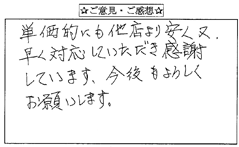 ☆ご意見・ご感想☆
単価的にも他店より安く又、
早く対応していただき感謝
しています、今後もよろしく
お願いします。